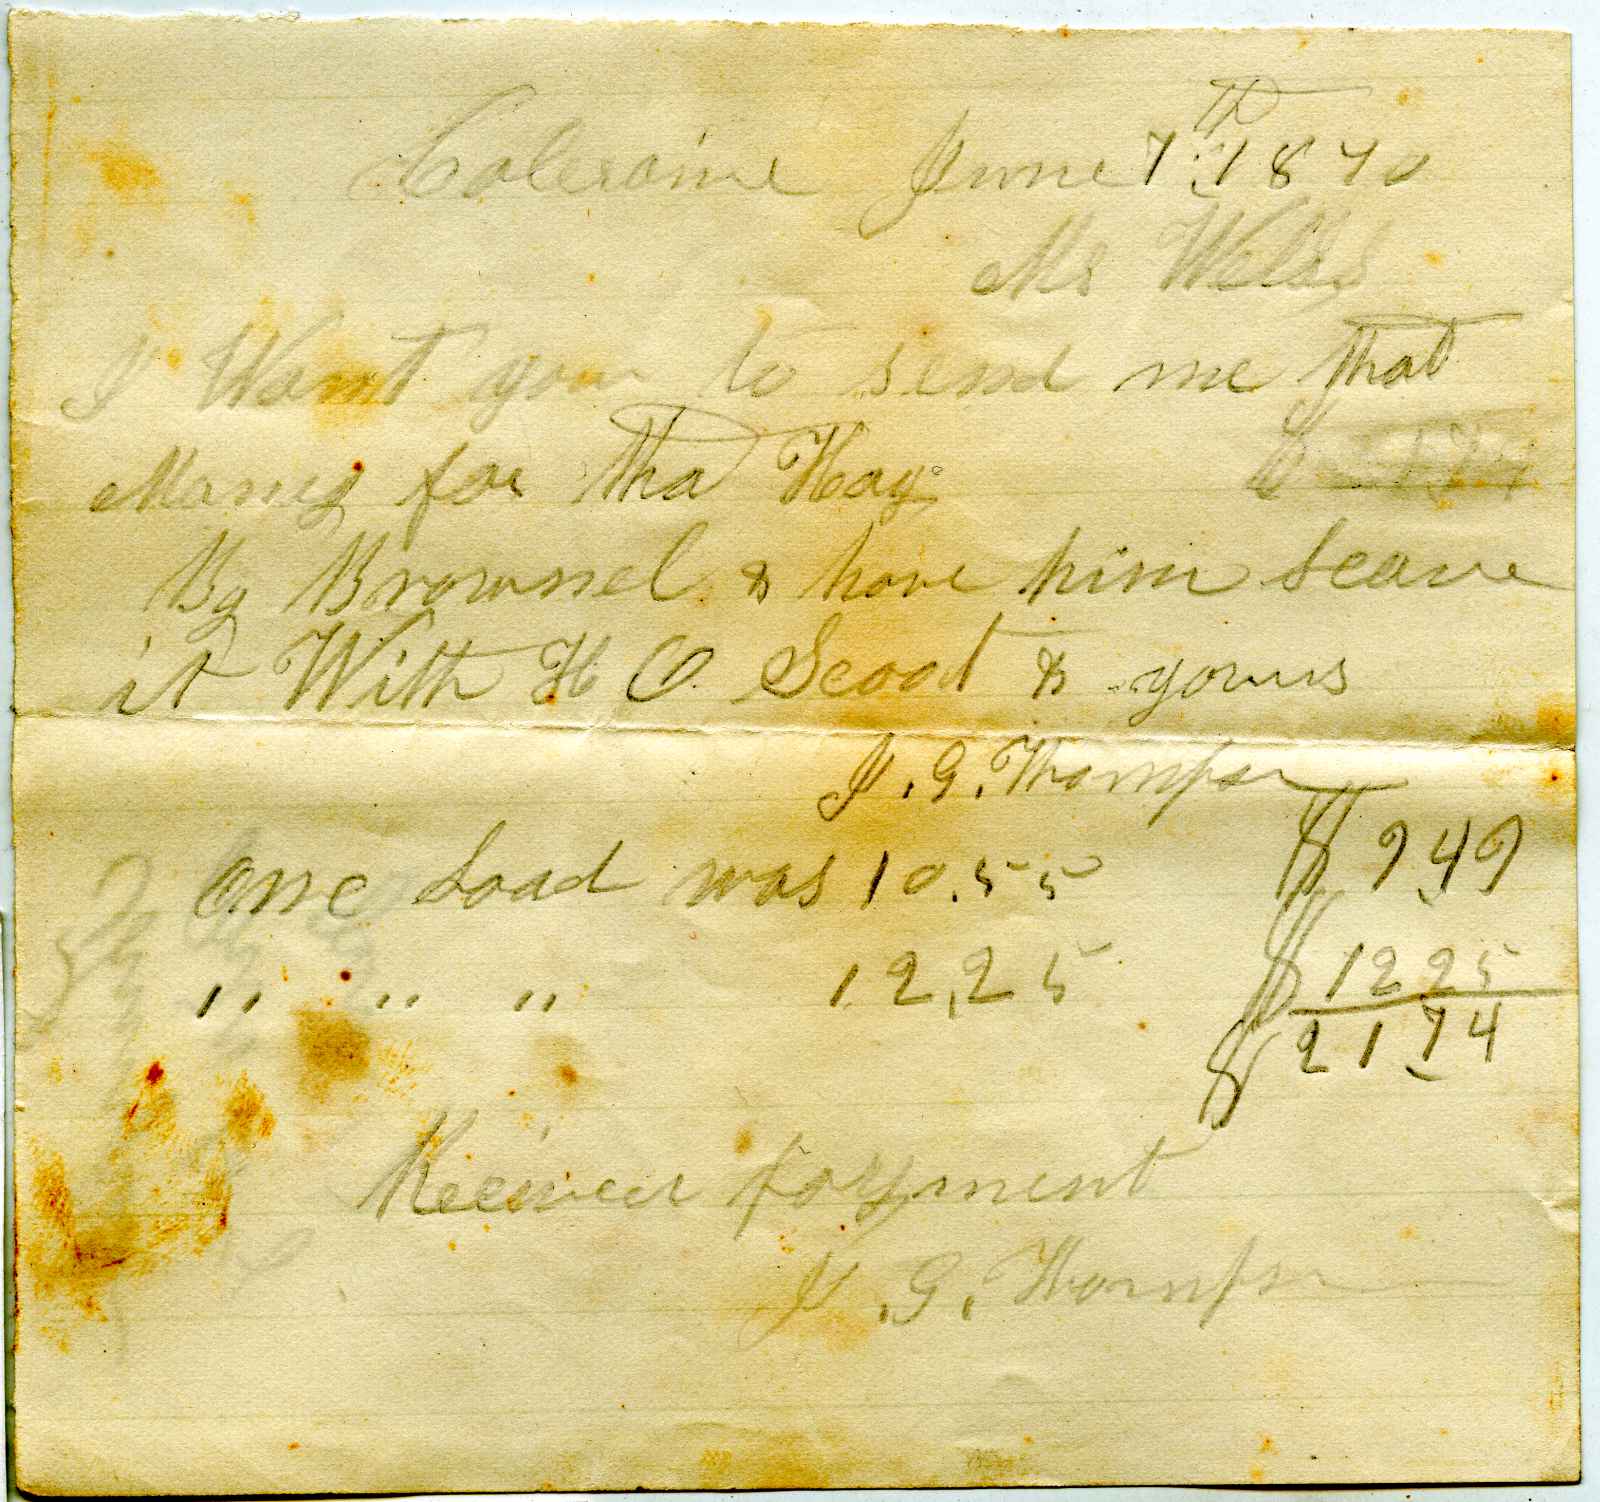 Coleraine June 7th 1870
Mr Wells
I Want you to send me that
Money for tha Hay
By Brownel & have him leave
it With H O Scoot & yours
J. G. Thompson
One Load was 10.55 $ 949
" " " 12,25 $ 1225
$ 2174
Receiveu payment
J. G. Thompson